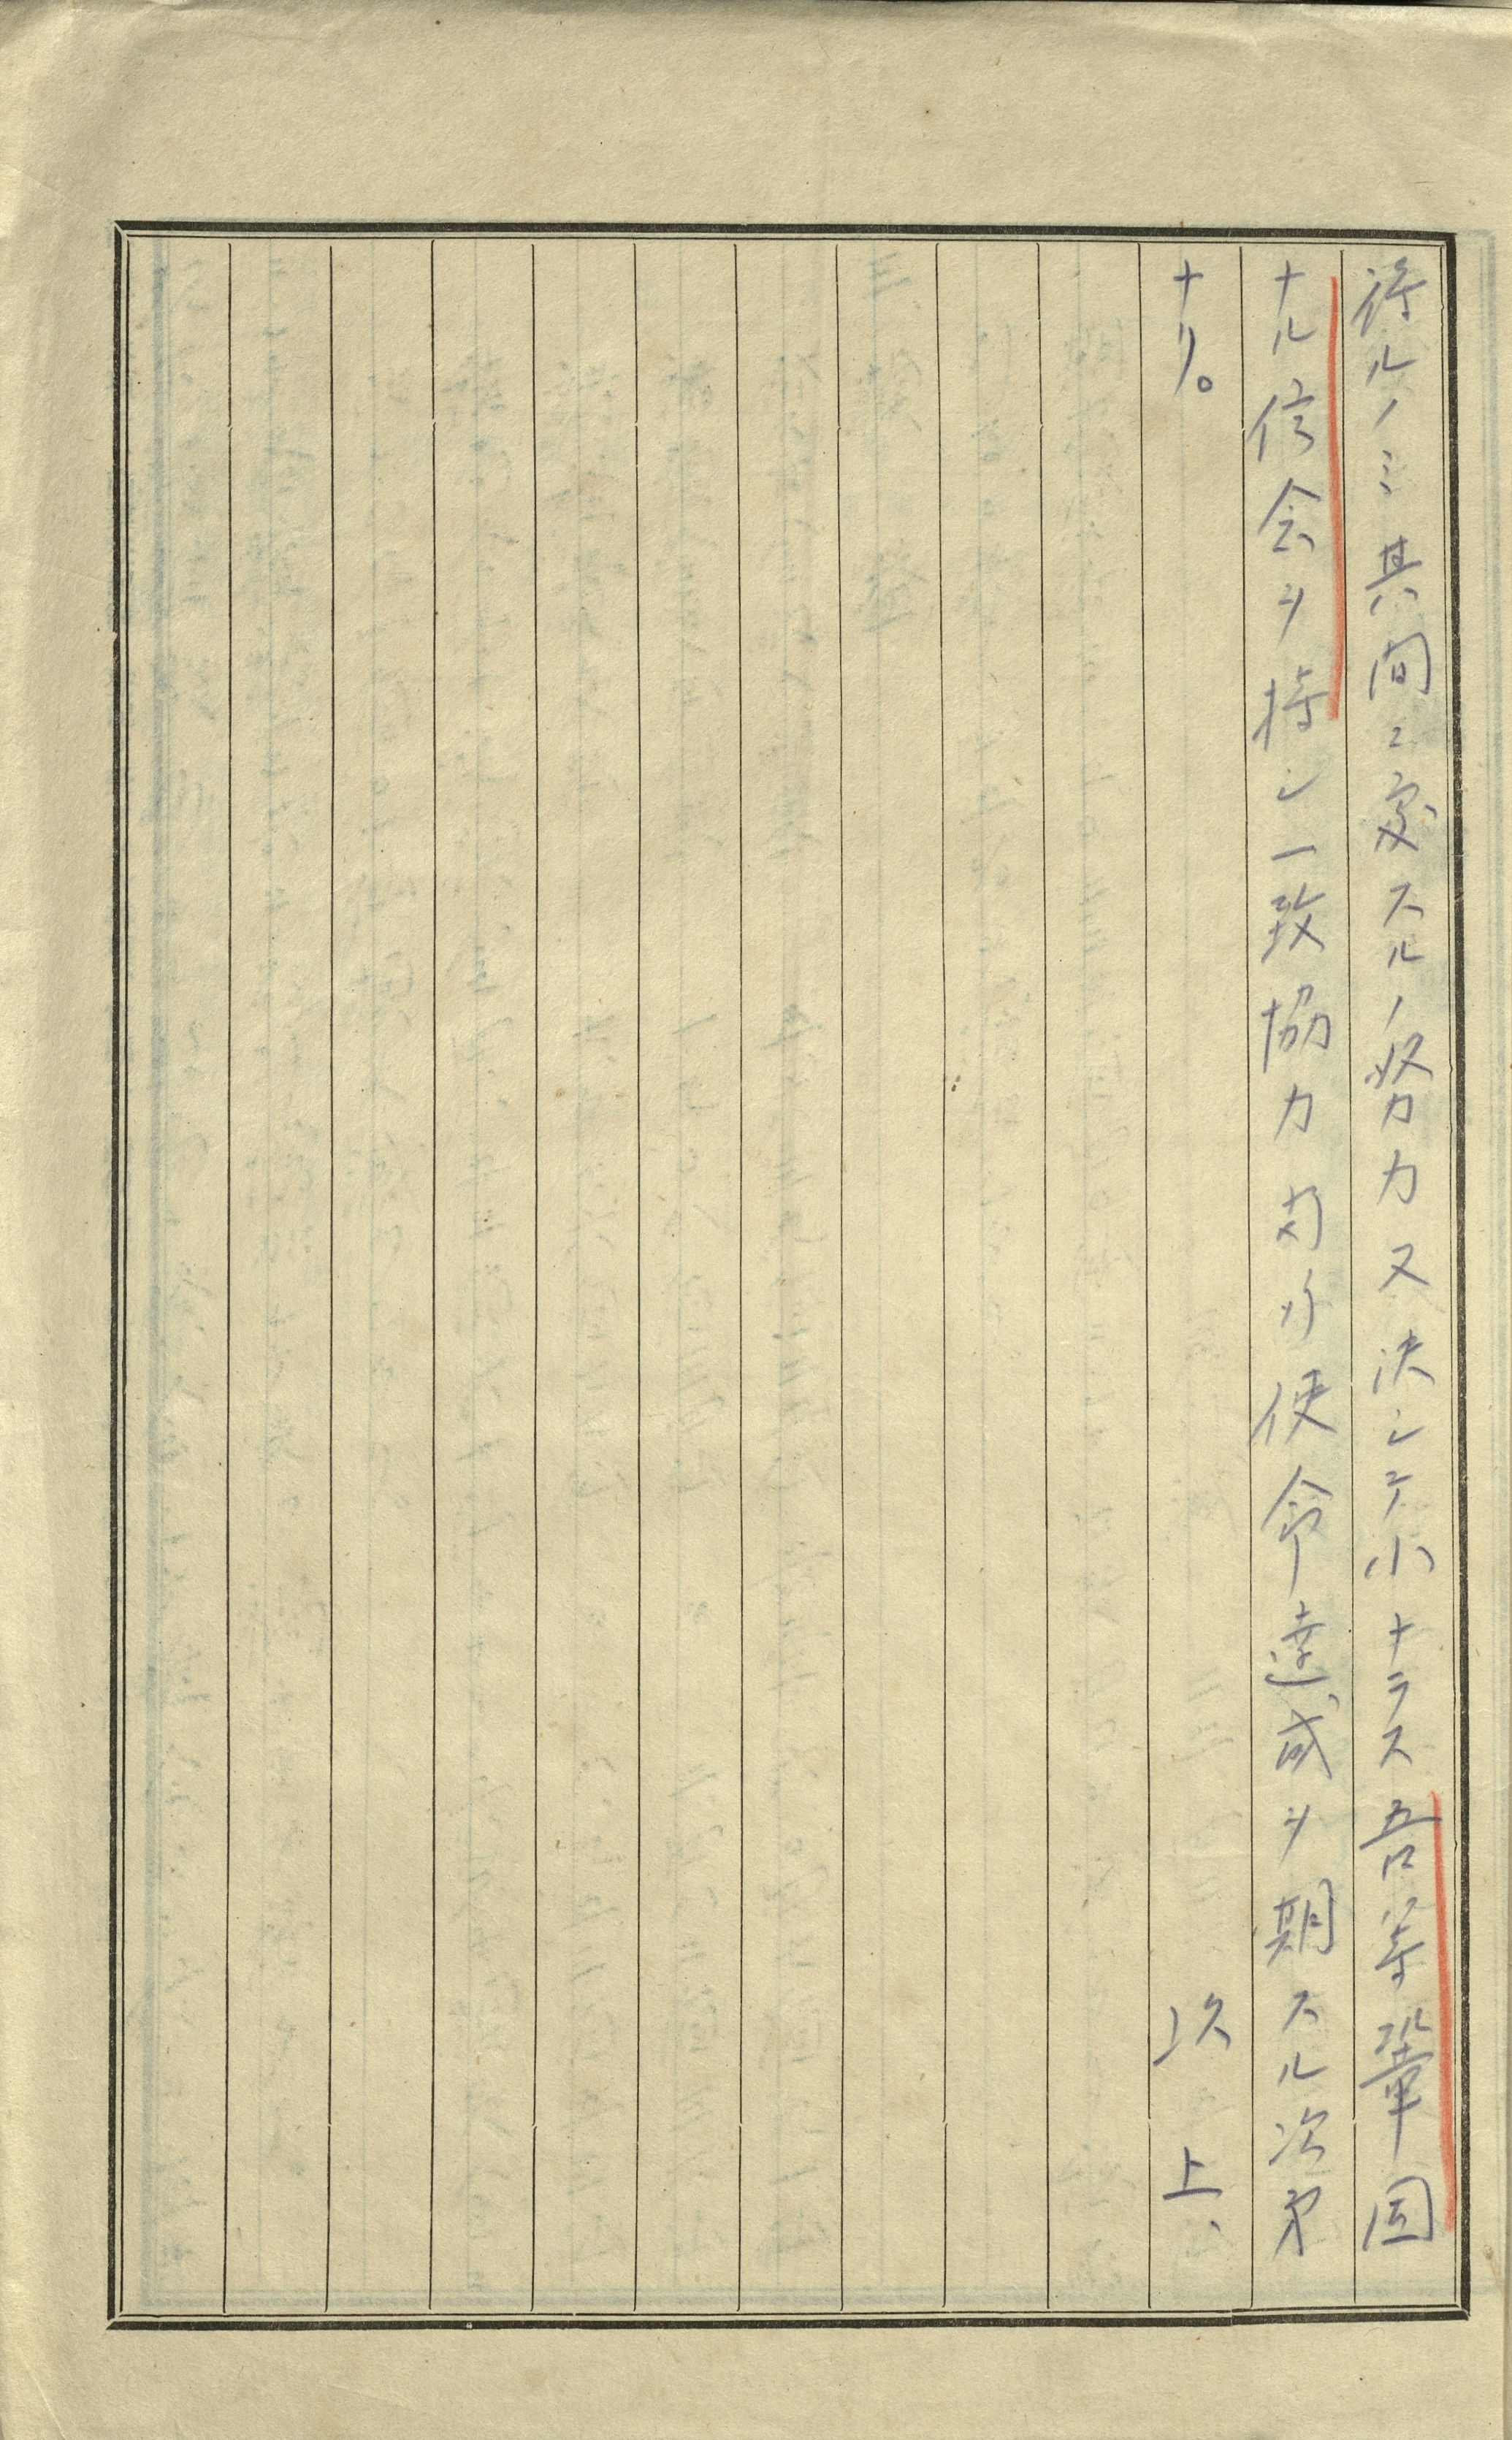 得ルノミ其間ニ処スルノ努力又決シテ小ナラス吾等鞏固
ナル信念ヲ持シ一致協力以テ使命達成ヲ期スル次第
ナリ。
以上、